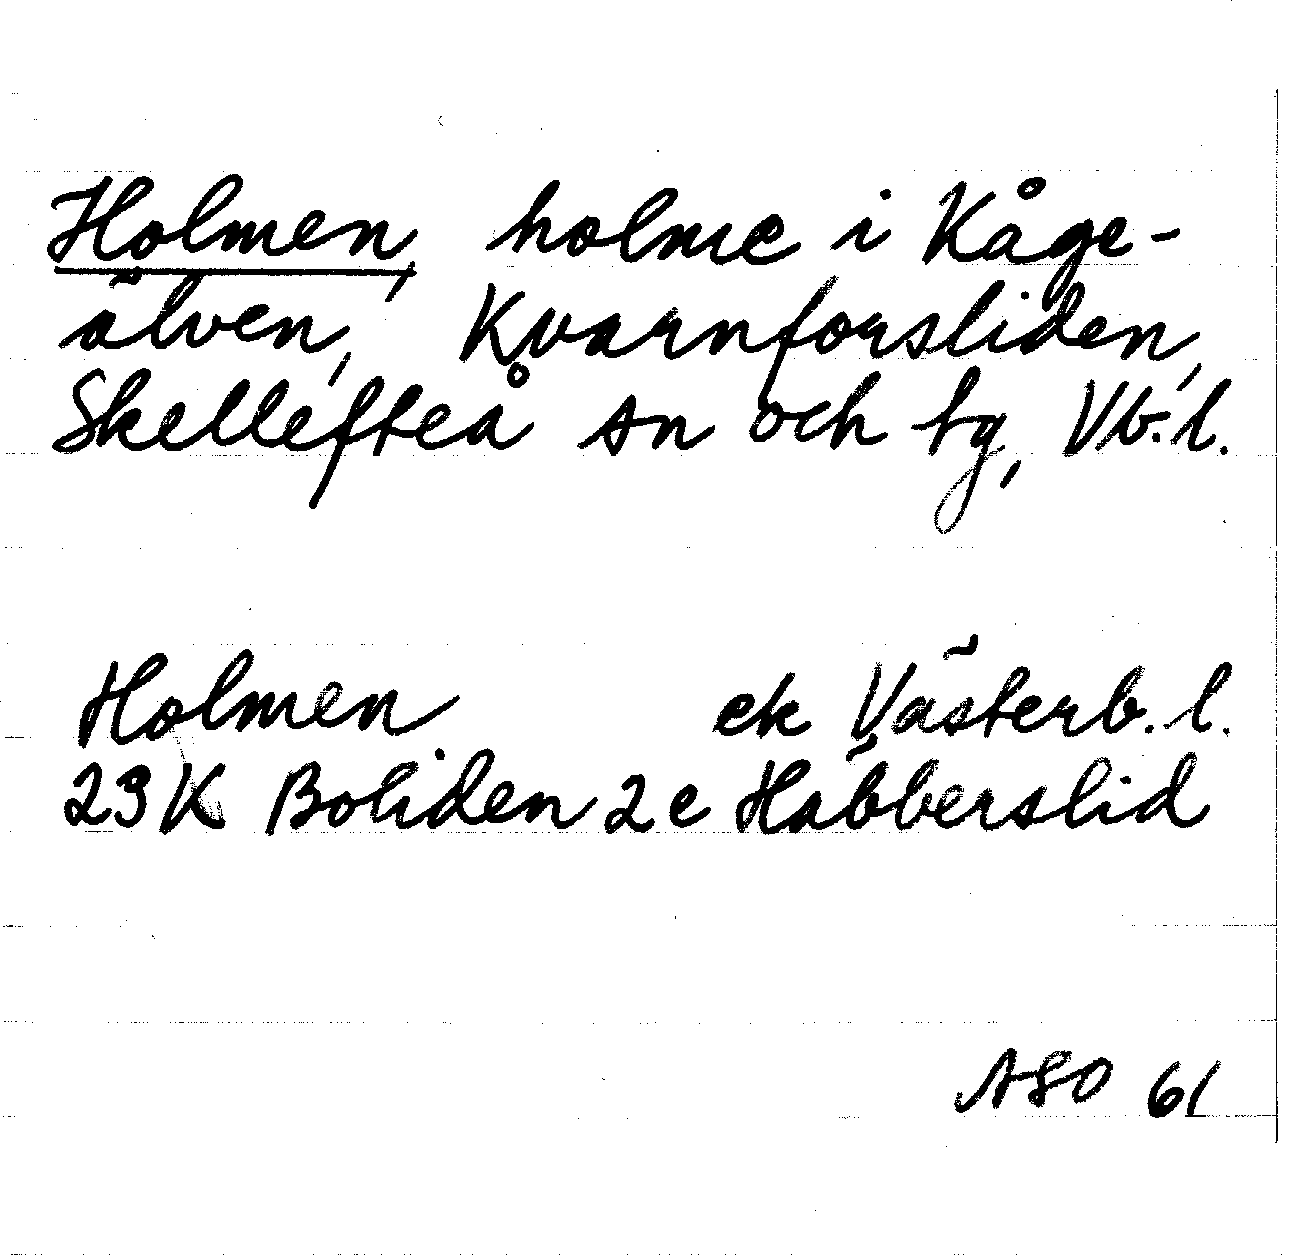 Holmen, holme i Kåge-
älven, Kvarnforsliden,
Skellefteå sn och tg, Vb. l.
Holmen ek Västerb. l.
23 K Boliden 2 e Häbberslid
ASO 61